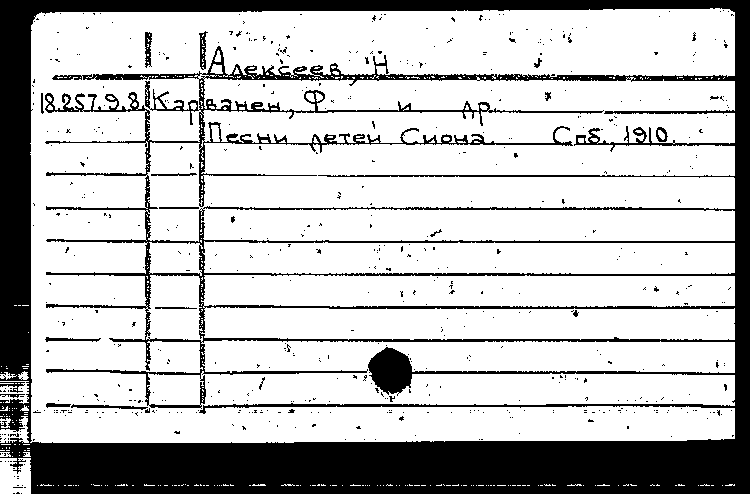 Алексеев, Н
18.257.9.8. Карванен, Ф. и др.
Песни детей Сиона. Спб., 1910.